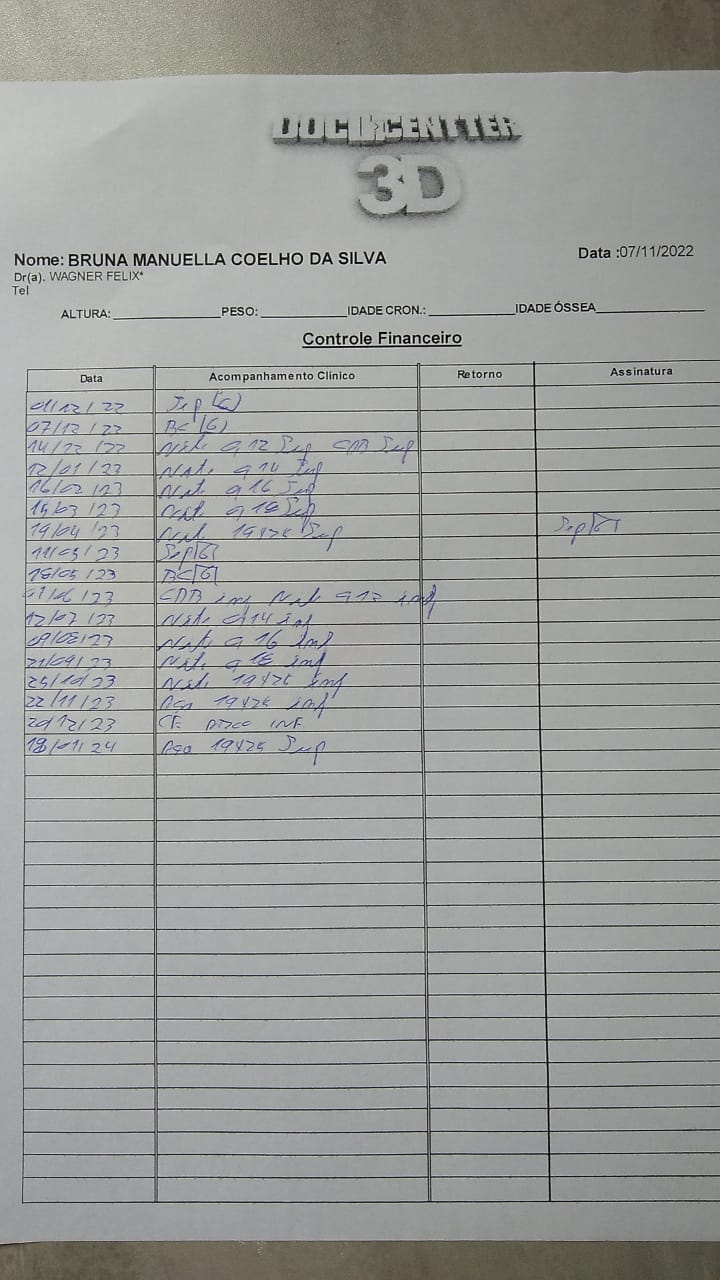 DOCUCENTTER
3D
Nome: BRUNA MANUELLA COELHO DA SILVA Data :07/11/2022
Dr(a). WAGNER FELIX*
Tel
ALTURA: PESO: IDADE CRON.: IDADE ÓSSEA
Controle Financeiro
Data Acompanhamento Clínico Retorno Assinatura
01/12/22 Sep (G)
07/12/22 BC (G)
14/12/22 Niti 0,12 Sup CDB Sup
12/01/23 Niti 0,14 Sup
16/02/23 Niti 0,16 Sup
15/03/23 Niti 0,18 Sup
19/04/23 Niti 19x25 Sup Sep
11/05/23 Sep
18/05/23 BC
01/06/23 CDB inf Niti 0,12 inf
12/07/23 Niti 0,14 inf
09/08/23 Niti 0,16 inf
21/09/23 Niti 0,18 inf
25/10/23 Niti 19x25 inf
22/11/23 Aço 19x25 inf
20/12/23 CE INF
18/01/24 Aço 19x25 Sup